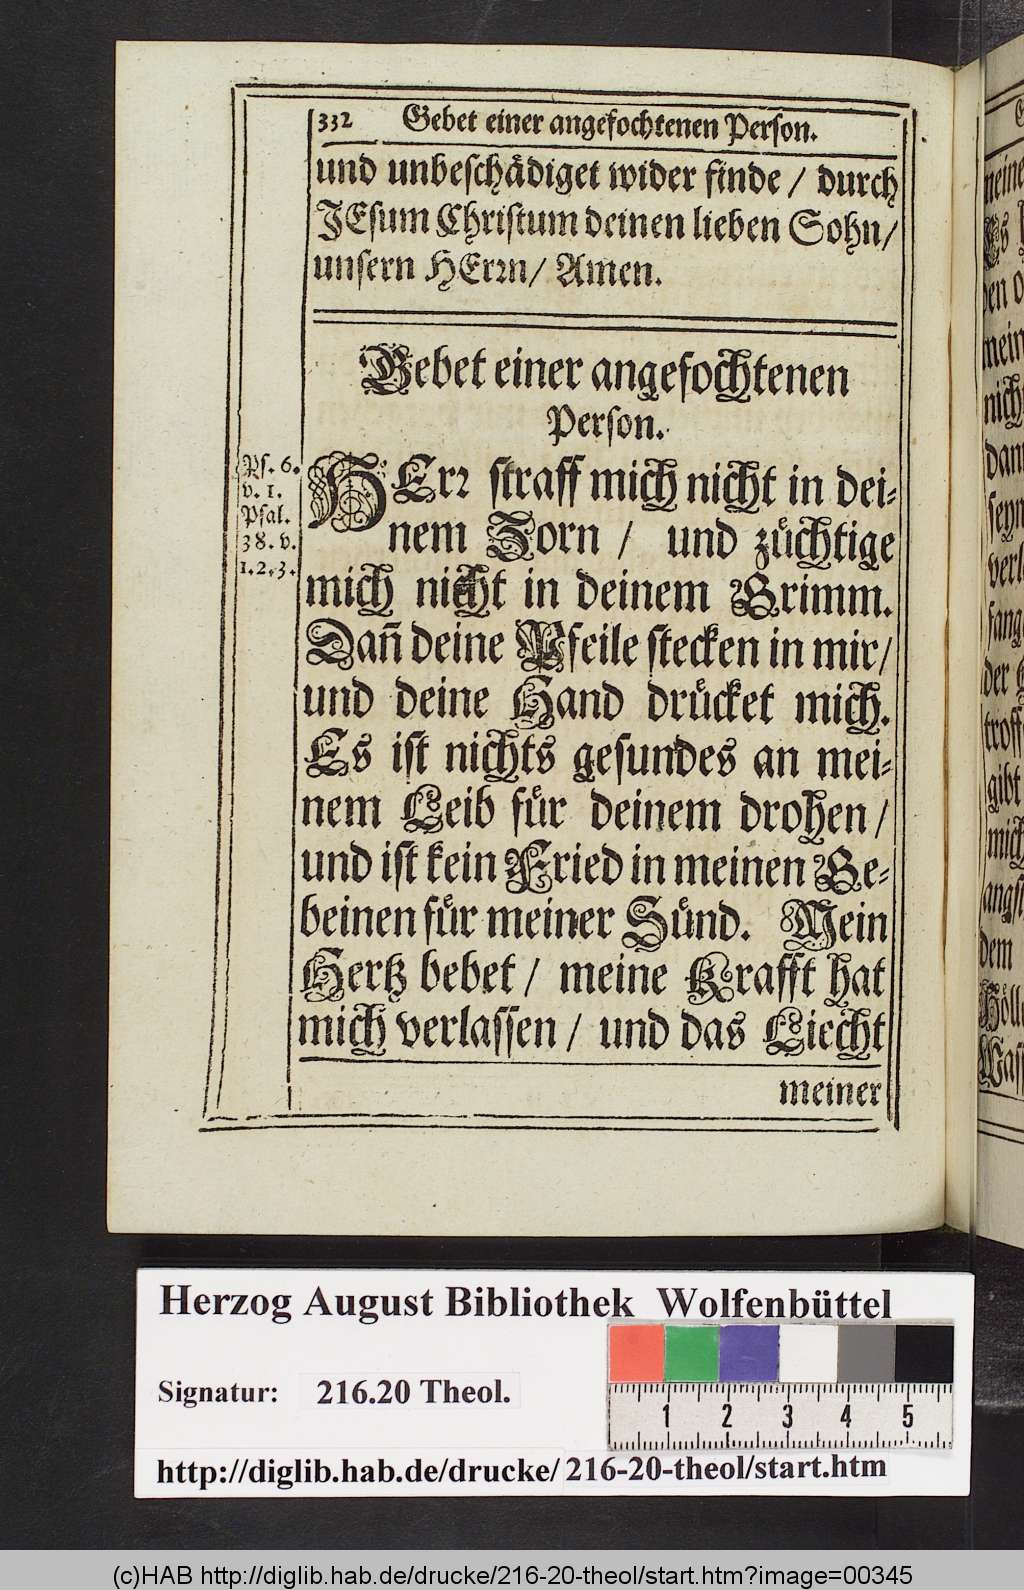 332 Gebet einer angefochtenen Person.
und unbeschädiget wider finde / durch
JEsum Christum deinen lieben Sohn /
unsern HErrn / Amen.
Gebet einer angefochtenen
Person.
Ps. 6.
v. 1.
Psal.
38. v.
1. 2. 3.
HErr straff mich nicht in dei-
nem Zorn / und züchtige
mich nicht in deinem Grimm.
Dañ deine Pfeile stecken in mir /
und deine Hand drücket mich.
Es ist nichts gesundes an mei-
nem Leib für deinem drohen /
und ist kein Fried in meinen Ge-
beinen für meiner Sünd. Mein
Hertz bebet / meine Krafft hat
mich verlassen / und das Liecht
meiner
Herzog August Bibliothek Wolfenbüttel
Signatur: 216.20 Theol.
1 2 3 4 5
http://diglib.hab.de/drucke/216-20-theol/start.htm
(c)HAB http://diglib.hab.de/drucke/216-20-theol/start.htm?image=00345